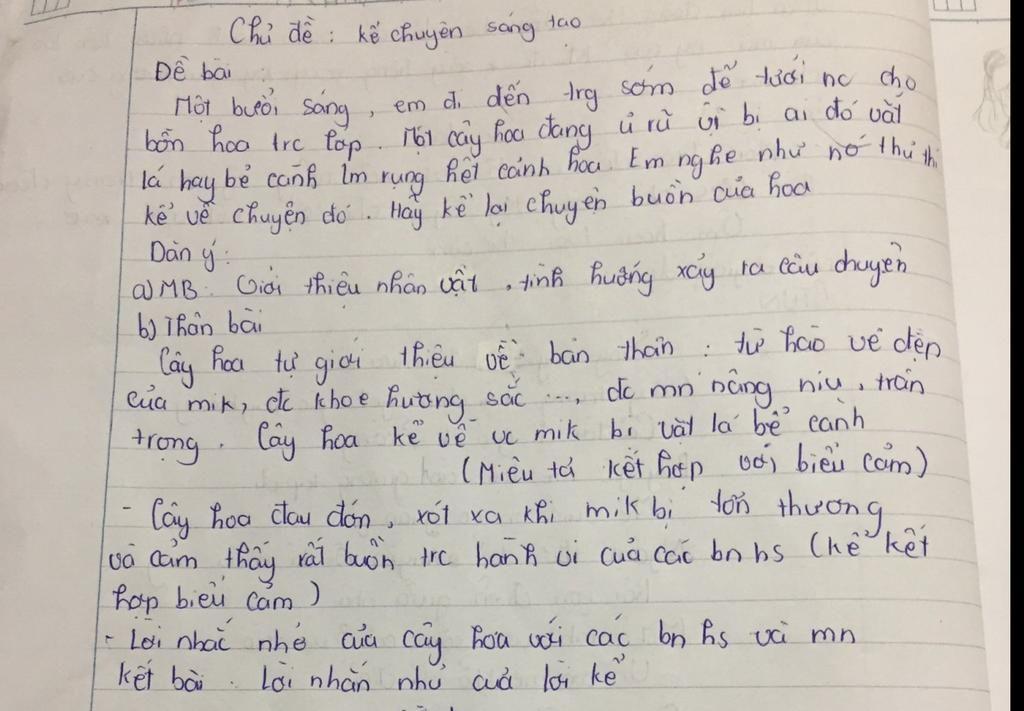 Chủ đề : kể chuyện sáng tao
Đề bài
Một buổi sáng, em đi đến trg sớm để tưới nc cho
bồn hoa trc lớp. Một cây hoa đang ủ rũ vì bị ai đó vặt
lá hay bẻ cành lm rụng hết cánh hoa. Em nghe như nó thủ thỉ
kể về chuyện đó. Hãy kể lại chuyện buồn của hoa
Dàn ý:
a) MB. Giới thiệu nhân vật, tình huống xảy ra câu chuyện
b) Thân bài
Cây hoa tự giới thiệu về bản thân : tự hào vẻ đẹp
của mik, đc khoe hương sắc ..., đc mn nâng niu, trân
trọng. Cây hoa kể về vc mik bị vặt lá bẻ cành
(Miêu tả kết hợp với biểu cảm)
- Cây hoa đau đớn, xót xa khi mik bị tổn thương
và cảm thấy rất buồn trc hành vi của các bn hs (kể kết
hợp biểu cảm)
- Lời nhắc nhở của cây hoa với các bn hs và mn
kết bài. Lời nhắn nhủ của lời kể